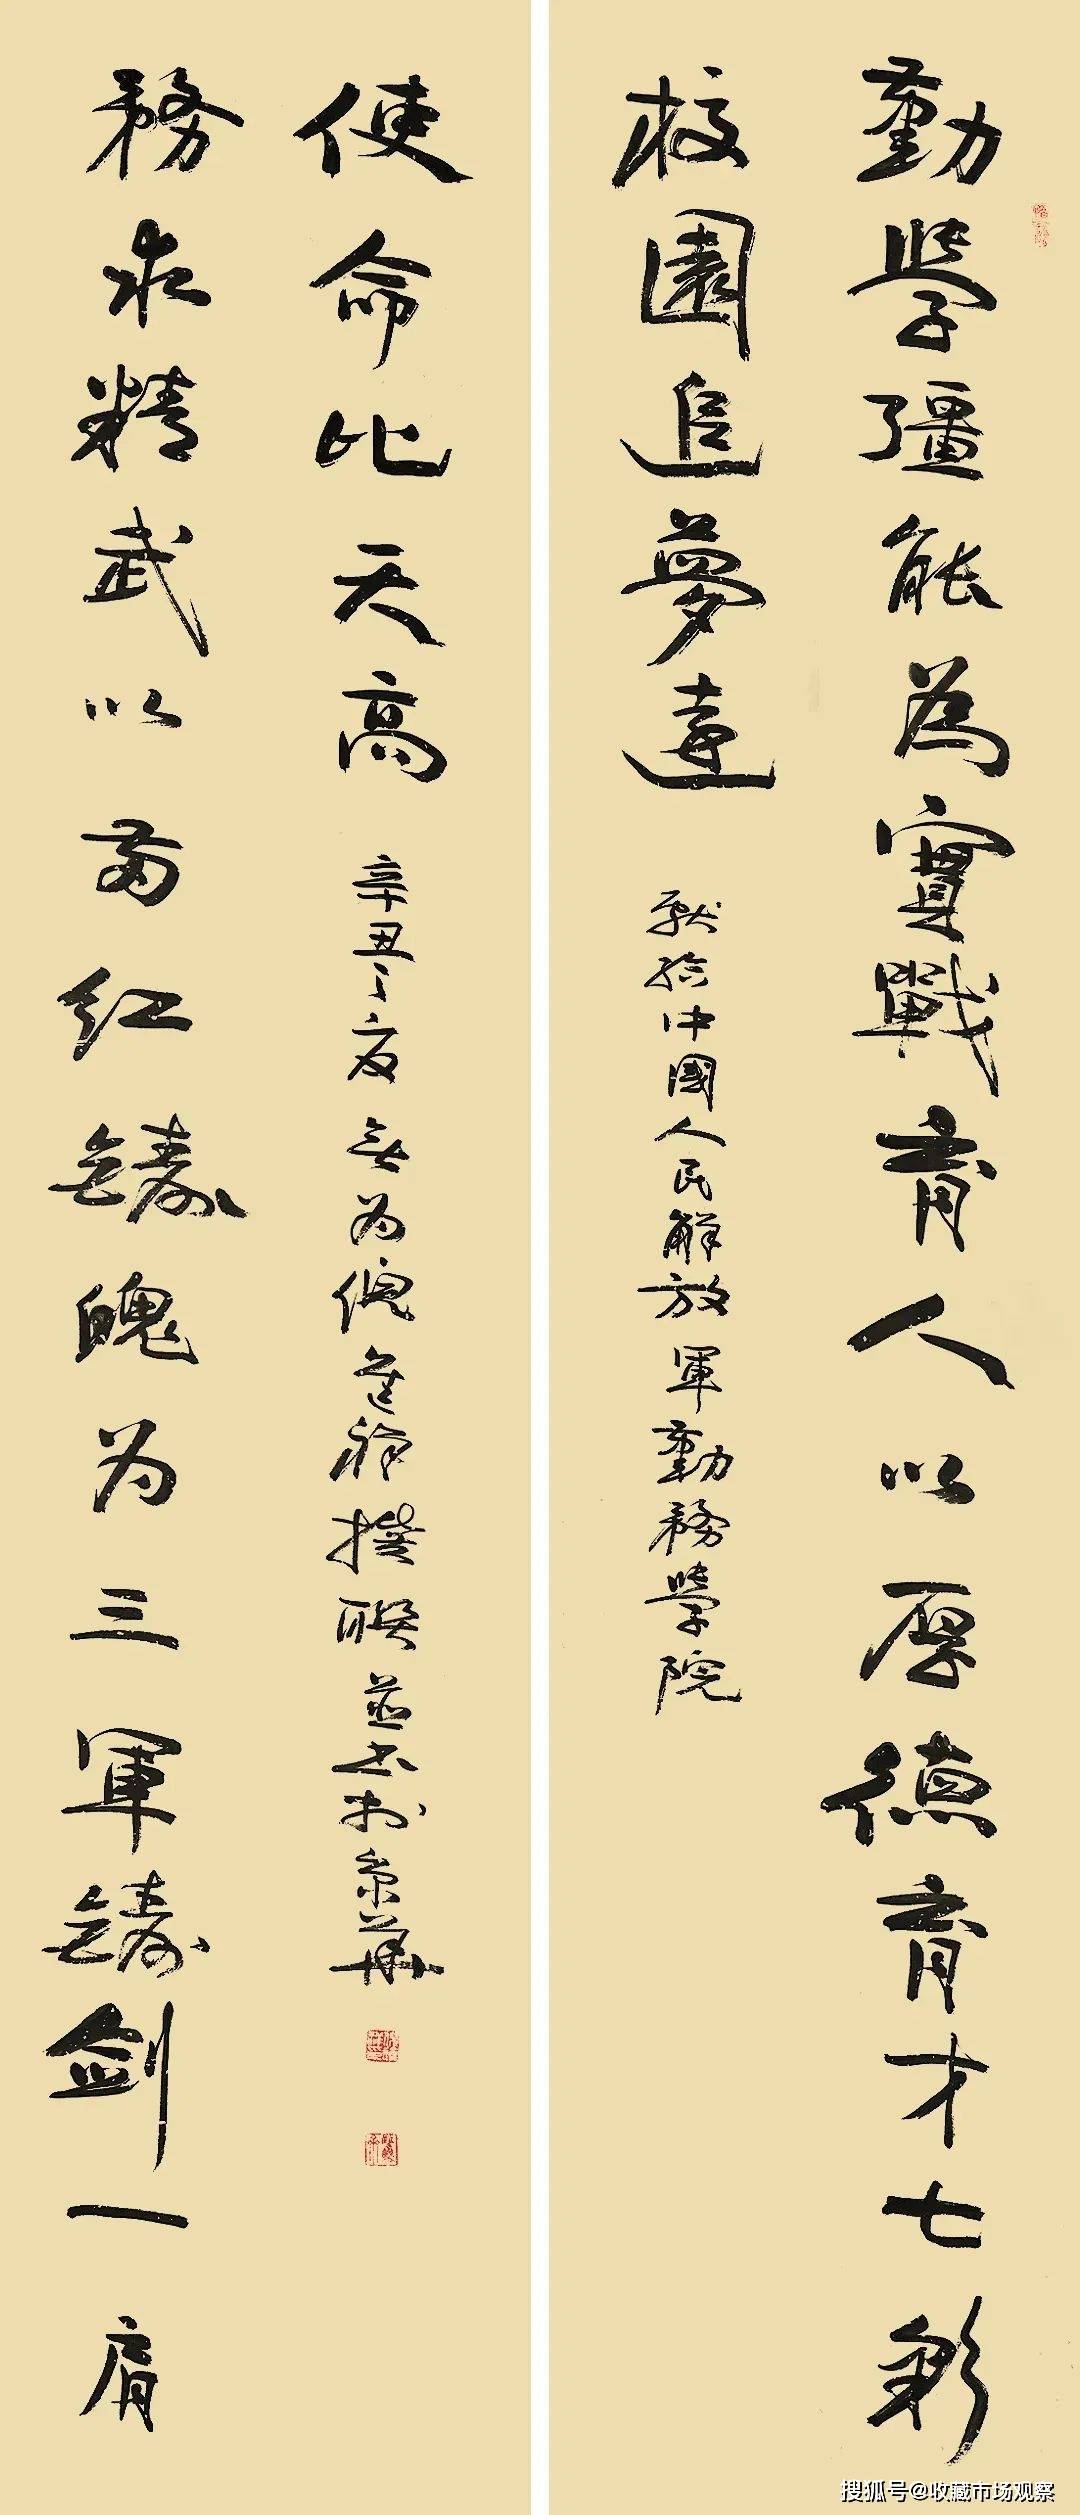 勤學彊能為實戰育人以厚德育才七彩
校園追夢遠
獻给中國人民解放軍勤務學院
務求精武以两红鑄魄为三軍鑄剑一肩
使命比天高
辛丑之夏 为 進祥撰聯並书於京華
搜狐号@收藏市场观察